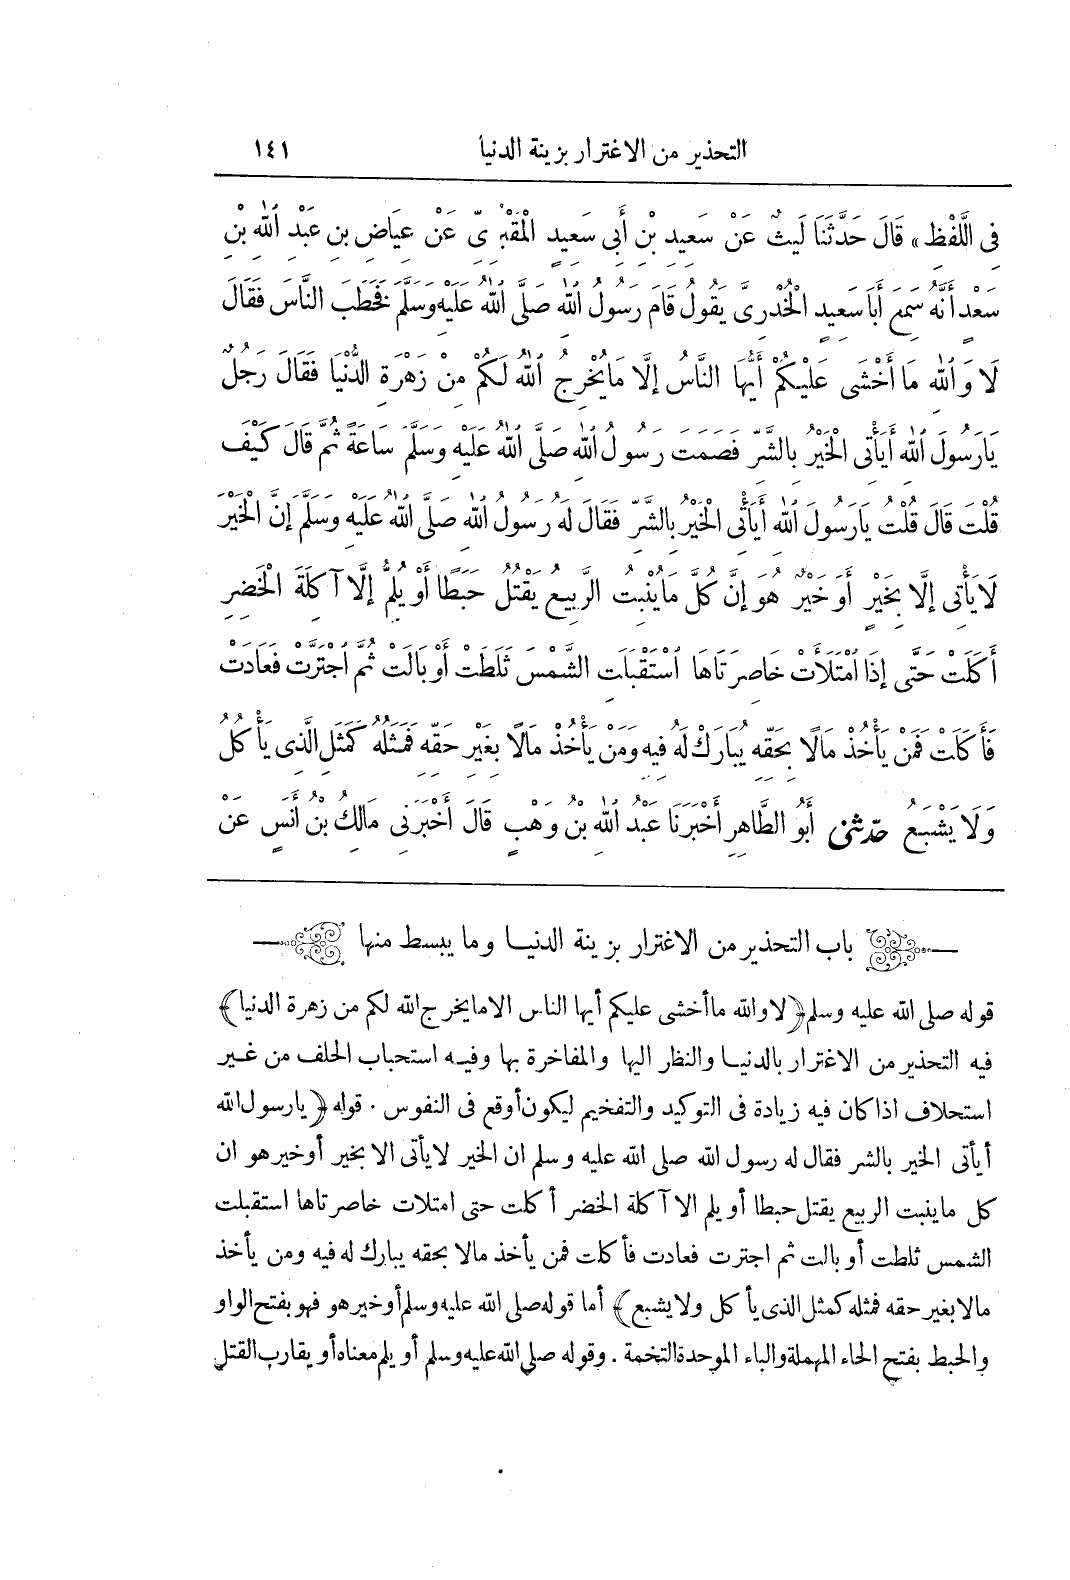 التحذير من الاغترار بزينة الدنيا ١٤١
فِى اللَّفْظِ» قَالَ حَدَّثَنَا لَيْثٌ عَنْ سَعِيدِ بْنِ أَبِى سَعِيدٍ الْمَقْبُرِىِّ عَنْ عِيَاضِ بْنِ عَبْدِ اللهِ بْنِ
سَعْدٍ أَنَّهُ سَمِعَ أَبَا سَعِيدٍ الْخُدْرِىَّ يَقُولُ قَامَ رَسُولُ اللهِ صَلَّى اللهُ عَلَيْهِ وَسَلَّمَ فَخَطَبَ النَّاسَ فَقَالَ
لَا وَاللهِ مَا أَخْشَى عَلَيْكُمْ أَيُّهَا النَّاسُ إِلَّا مَا يُخْرِجُ اللهُ لَكُمْ مِنْ زَهْرَةِ الدُّنْيَا فَقَالَ رَجُلٌ
يَارَسُولَ اللهِ أَيَأْتِى الْخَيْرُ بِالشَّرِّ فَصَمَتَ رَسُولُ اللهِ صَلَّى اللهُ عَلَيْهِ وَسَلَّمَ سَاعَةً ثُمَّ قَالَ كَيْفَ
قُلْتَ قَالَ قُلْتُ يَارَسُولَ اللهِ أَيَأْتِى الْخَيْرُ بِالشَّرِّ فَقَالَ لَهُ رَسُولُ اللهِ صَلَّى اللهُ عَلَيْهِ وَسَلَّمَ إِنَّ الْخَيْرَ
لَا يَأْتِى إِلَّا بِخَيْرٍ أَوَ خَيْرٌ هُوَ إِنَّ كُلَّ مَا يُنْبِتُ الرَّبِيعُ يَقْتُلُ حَبَطًا أَوْ يُلِمُّ إِلَّا آكِلَةَ الْخَضِرِ
أَكَلَتْ حَتَّى إِذَا امْتَلَأَتْ خَاصِرَتَاهَا اسْتَقْبَلَتِ الشَّمْسَ ثَلَطَتْ أَوْ بَالَتْ ثُمَّ اجْتَرَّتْ فَعَادَتْ
فَأَكَلَتْ فَمَنْ يَأْخُذْ مَالًا بِحَقِّهِ يُبَارَكْ لَهُ فِيهِ وَمَنْ يَأْخُذْ مَالًا بِغَيْرِ حَقِّهِ فَمَثَلُهُ كَمَثَلِ الَّذِى يَأْكُلُ
وَلَا يَشْبَعُ حَدَّثَنِى أَبُو الطَّاهِرِ أَخْبَرَنَا عَبْدُ اللهِ بْنُ وَهْبٍ قَالَ أَخْبَرَنِى مَالِكُ بْنُ أَنَسٍ عَنْ
باب التحذير من الاغترار بزينة الدنيا وما يبسط منها
قوله صلى الله عليه وسلم ﴿لا والله ما أخشى عليكم أيها الناس الا ما يخرج الله لكم من زهرة الدنيا﴾
فيه التحذير من الاغترار بالدنيا والنظر اليها والمفاخرة بها وفيه استحباب الحلف من غير
استحلاف اذا كان فيه زيادة فى التوكيد والتفخيم ليكون أوقع فى النفوس . قوله ﴿يارسول الله
أيأتى الخير بالشر فقال له رسول الله صلى الله عليه وسلم ان الخير لا يأتى الا بخير أو خير هو ان
كل ما ينبت الربيع يقتل حبطا أو يلم الا آكلة الخضر أكلت حتى امتلات خاصرتاها استقبلت
الشمس ثلطت أو بالت ثم اجترت فعادت فأكلت فمن يأخذ مالا بحقه يبارك له فيه ومن يأخذ
مالا بغير حقه فمثله كمثل الذى يأكل ولا يشبع﴾ أما قوله صلى الله عليه وسلم أو خير هو فهو بفتح الواو
والحبط بفتح الحاء المهملة والباء الموحدة التخمة . وقوله صلى الله عليه وسلم أو يلم معناه أو يقارب القتل